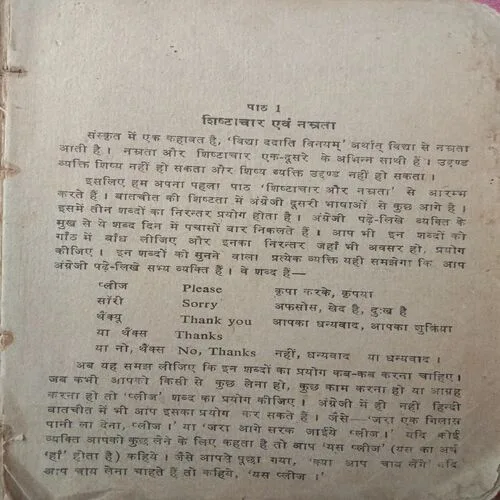 पाठ 1
शिष्टाचार एवं नम्रता
संस्कृत में एक कहावत है, 'विद्या ददाति विनयम्' अर्थात् विद्या से नम्रता
आती है । नम्रता और शिष्टाचार एक-दूसरे के अभिन्न साथी हैं । उद्दण्ड
व्यक्ति शिष्य नहीं हो सकता और शिष्य व्यक्ति उद्दण्ड नहीं हो सकता ।
इसलिए हम अपना पहला पाठ 'शिष्टाचार और नम्रता' से आरम्भ
करते हैं । बातचीत की शिष्टता में अंग्रेजी दूसरी भाषाओं से कुछ आगे है ।
इसमें तीन शब्दों का निरन्तर प्रयोग होता है । अंग्रेजी पढ़े-लिखे व्यक्ति के
मुख से ये शब्द दिन में पचासों बार निकलते हैं । आप भी इन शब्दों को
गाँठ में बाँध लीजिए और इनका निरन्तर जहाँ भी अवसर हो, प्रयोग
कीजिए । इन शब्दों को सुनने वाला प्रत्येक व्यक्ति यही समझेगा कि आप
अंग्रेजी पढ़े-लिखे सभ्य व्यक्ति हैं । वे शब्द हैं—
प्लीज Please कृपा करके, कृपया
सॉरी Sorry अफसोस, खेद है, दुःख है
थैंक्यु Thank you आपका धन्यवाद, आपका शुक्रिया
या थैंक्स Thanks
या नो, थैंक्स No, Thanks नहीं, धन्यवाद या धन्यवाद ।
अब यह समझ लीजिए कि इन शब्दों का प्रयोग कब-कब करना चाहिए ।
जब कभी आपको किसी से कुछ लेना हो, कुछ काम करना हो या आग्रह
करना हो तो 'प्लीज' शब्द का प्रयोग कीजिए । अंग्रेजी में ही नहीं हिन्दी
बातचीत में भी आप इसका प्रयोग कर सकते हैं । जैसे—'जरा एक गिलास
पानी ला देना, प्लीज ।' या 'जरा आगे सरक जाईये प्लीज ।' यदि कोई
व्यक्ति आपको कुछ लेने के लिए कहता है तो आप 'यस प्लीज' (यस का अर्थ
'हाँ' होता है) कहिये । जैसे आपसे पूछा गया, 'क्या आप चाय लेंगे' यदि
आप चाय लेना चाहते हैं तो कहिये, 'यस प्लीज ।'